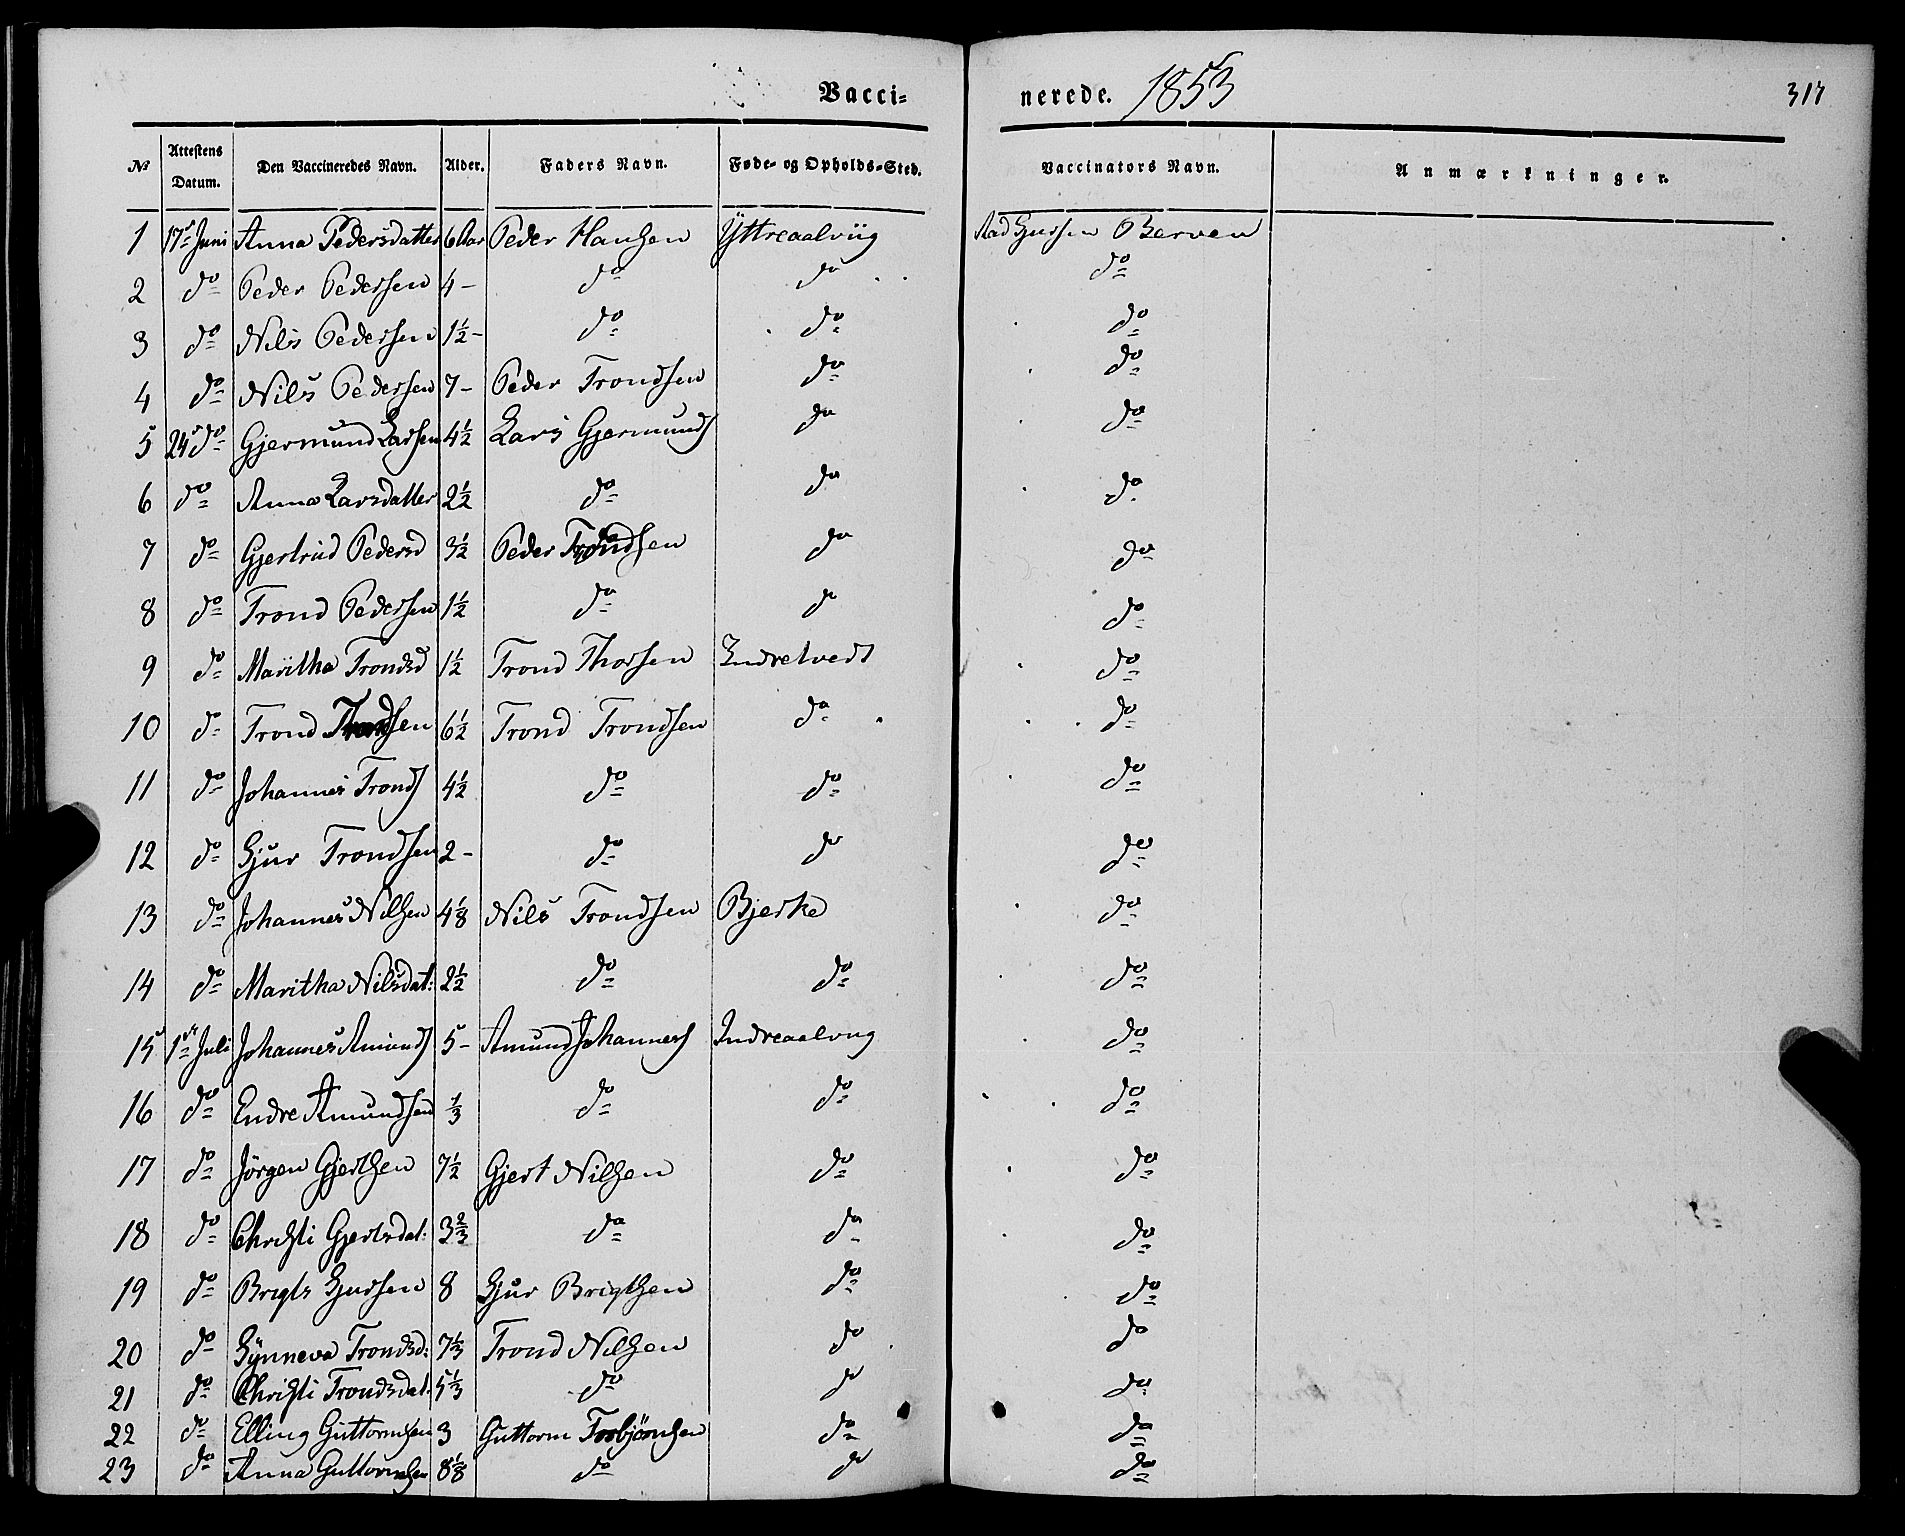 Vacci= nerede. 1853 317
№ Attestens Datum. Den Vaccineredes Navn. Alder. Faders Navn. Føde- og Opholds-Sted. Vaccinators Navn. Anmærkninger.
1 17de Juni Anna Pedersdatter 6 Aar Peder Hansen Yttreaalviig Aad Gjursen Berven
2 do Peder Pedersen 4 - do do do
3 do Nils Pedersen 1½ - do do do
4 do Nils Pedersen 7 - Peder Trondsen do do
5 24de do Gjermund Larsen 4½ Lars Gjermunds do do
6 do Anna Larsdatter 2½ do do do
7 do Gjertrud Pedersd 3½ Peder Trondsen do do
8 do Trond Pedersen 1½ do do do
9 do Maritha Trondsd 1½ Trond Thorsen Indretvedt do
10 do Trond Trondsen 6½ Trond Trondsen do do
11 do Johannes Tronds 4½ do do do
12 do Sjur Trondsen 2 - do do do
13 do Johannes Nilsen 4⅛ Nils Trondsen Bjerke do
14 do Maritha Nilsdat: 2½ do do do
15 1ste Juli Johannes Amunds 5 - Amund Johannes Indreaalvug do
16 do Endre Amundsen ⅓ do do do
17 do Jörgen Gjertsen 7½ Gjert Nilsen do do
18 do Christi Gjertsdat: 3⅔ do do do
19 do Brigts Sjursen 8 Sjur Brigtsen do do
20 do Synneva Trondsd: 7⅓ Trond Nilsen do do
21 do Christi Trondsdat. 5⅓ do do do
22 do Elling Guttormsen 3 Guttorm Torbjörnsen do do
23 do Anna Guttormsen 8⅛ do do do